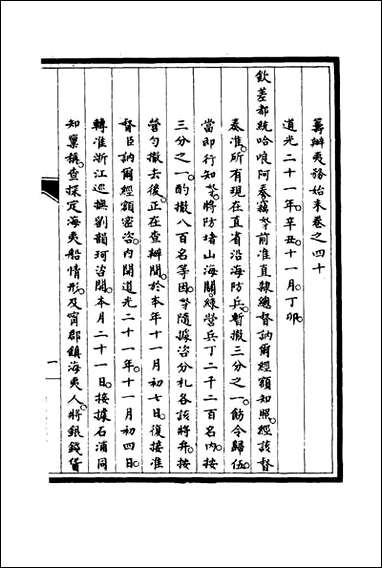 籌辦夷務始末卷之四十
道光二十一年辛丑十一月丁卯
欽差都統哈哴阿奏竊等前准直隸總督訥爾經額知照經該督
奏准所有現在直省沿海防兵暫撤三分之一飭令歸伍
當即行知等將防堵山海關綠營兵丁二千二百名內按
三分之一酌撤八百名等因等隨據咨分札各該將弁按
營勻撤去後正在查辦間於本年十一月初七日復接准
督臣訥爾經額密咨內開道光二十一年十一月初四日
轉准浙江巡撫劉韻珂咨開本月二十一日接據石浦同
知稟稱查探定海夷船情形及甯郡鎮海夷人將銀錢貨
一